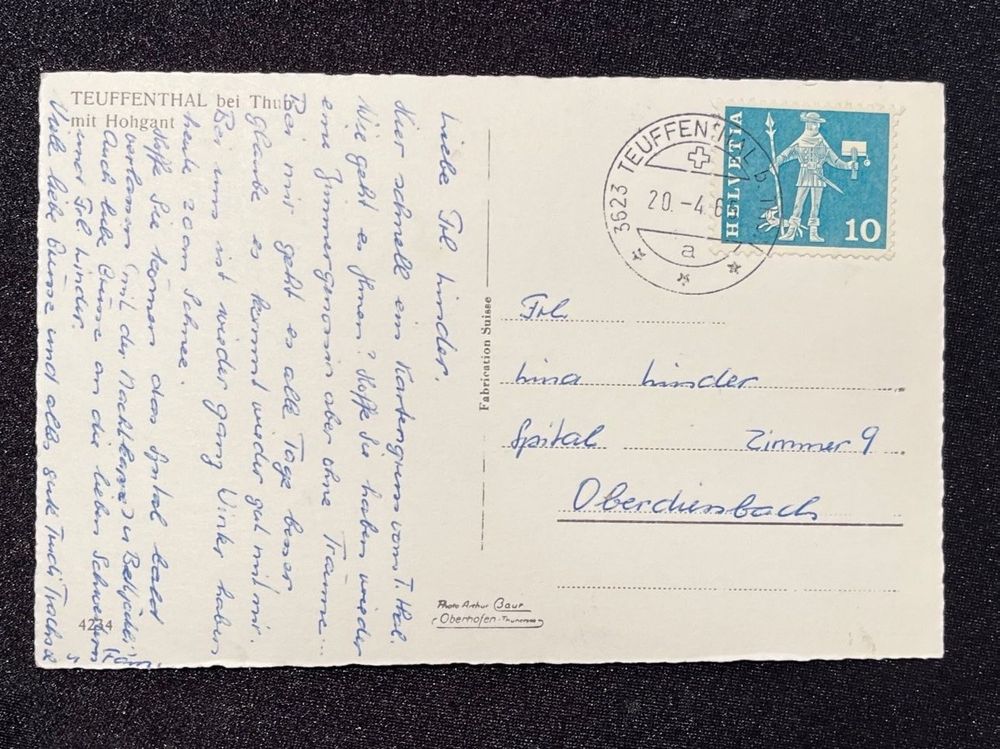 TEUFFENTHAL bei Thun
mit Hohgant
Liebe Frl Linder.
Hier schnell ein Kartengruss vom T. Hal.
Wie geht es Ihnen? Hoffe Sie haben wieder
eine Zimmergenossin aber ohne Träume..
Bei mir geht es alle Tage besser
glaube es kommt wieder gut mit mir.
Bei uns ist wieder ganz Winter haben
heute 20cm Schnee.
Hoffe Sie können das Spital bald
verlassen (mit der
Auch liebe Grüsse an die lieben Schwestern
und Frl Linder.
Viele liebe Grüsse und alles gute Trudi Trachsel
4234
Fabrication Suisse
Photo Arthur Baur
Oberhofen-Thunersee
3623 TEUFFENTHAL b.
20.-4.6
a
HELVETIA
10
Frl.
Lina Linder
Spital Zimmer 9
Oberdiessbach